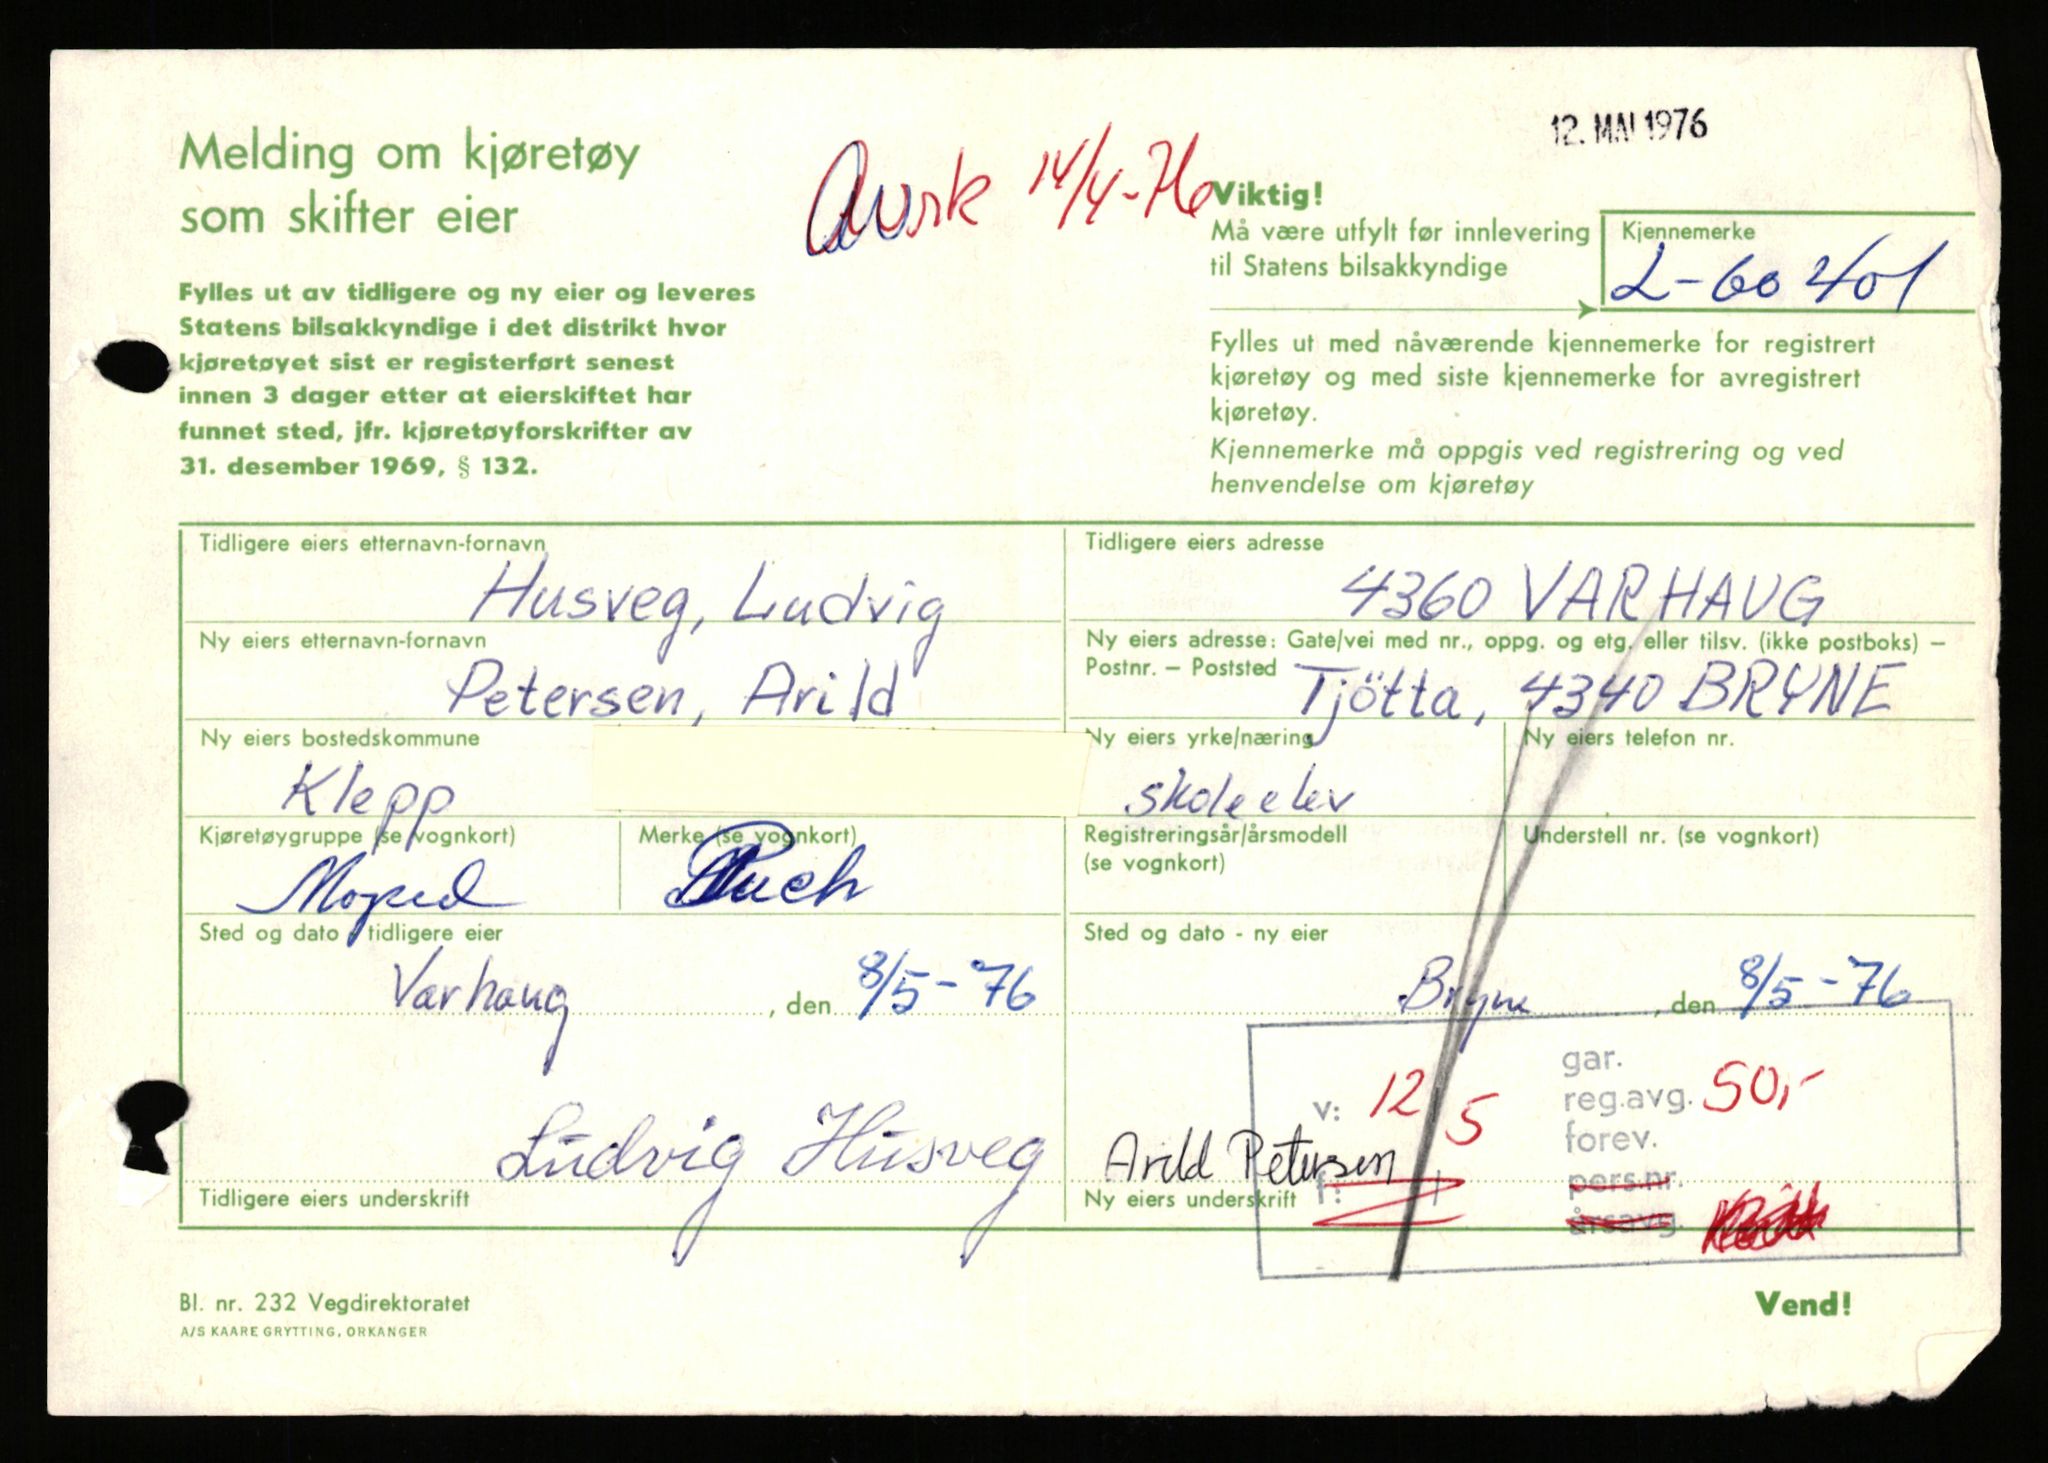 12. MAI 1976
Melding om kjøretøy
som skifter eier
Avsk 14/4-76
Fylles ut av tidligere og ny eier og leveres
Statens bilsakkyndige i det distrikt hvor
kjøretøyet sist er registerført senest
innen 3 dager etter at eierskiftet har
funnet sted, jfr. kjøretøyforskrifter av
31. desember 1969, § 132.
Viktig!
Må være utfylt før innlevering
til Statens bilsakkyndige
Kjennemerke
L-60401
Fylles ut med nåværende kjennemerke for registrert
kjøretøy og med siste kjennemerke for avregistrert
kjøretøy.
Kjennemerke må oppgis ved registrering og ved
henvendelse om kjøretøy
Tidligere eiers etternavn-fornavn
Husveg, Ludvig
Tidligere eiers adresse
4360 VARHAUG
Ny eiers etternavn-fornavn
Petersen, Arild
Ny eiers adresse: Gate/vei med nr., oppg. og etg. eller tilsv. (ikke postboks) –
Postnr. – Poststed Tjötta, 4340 BRYNE
Ny eiers bostedskommune
Klepp
Ny eiers yrke/næring
skoleelev
Ny eiers telefon nr.
Kjøretøygruppe (se vognkort)
Moped
Merke (se vognkort)
Puch
Registreringsår/årsmodell
(se vognkort)
Understell nr. (se vognkort)
Sted og dato - tidligere eier
Varhaug, den 8/5-76
Sted og dato - ny eier
Bryne, den 8/5-76
gar.
v: 12 5 reg.avg. 50,-
forev.
pers.nr.
f:
årsavg.
Ludvig Husveg
Tidligere eiers underskrift
Arild Petersen
Ny eiers underskrift
Bl. nr. 232 Vegdirektoratet
A/S KAARE GRYTTING, ORKANGER
Vend!